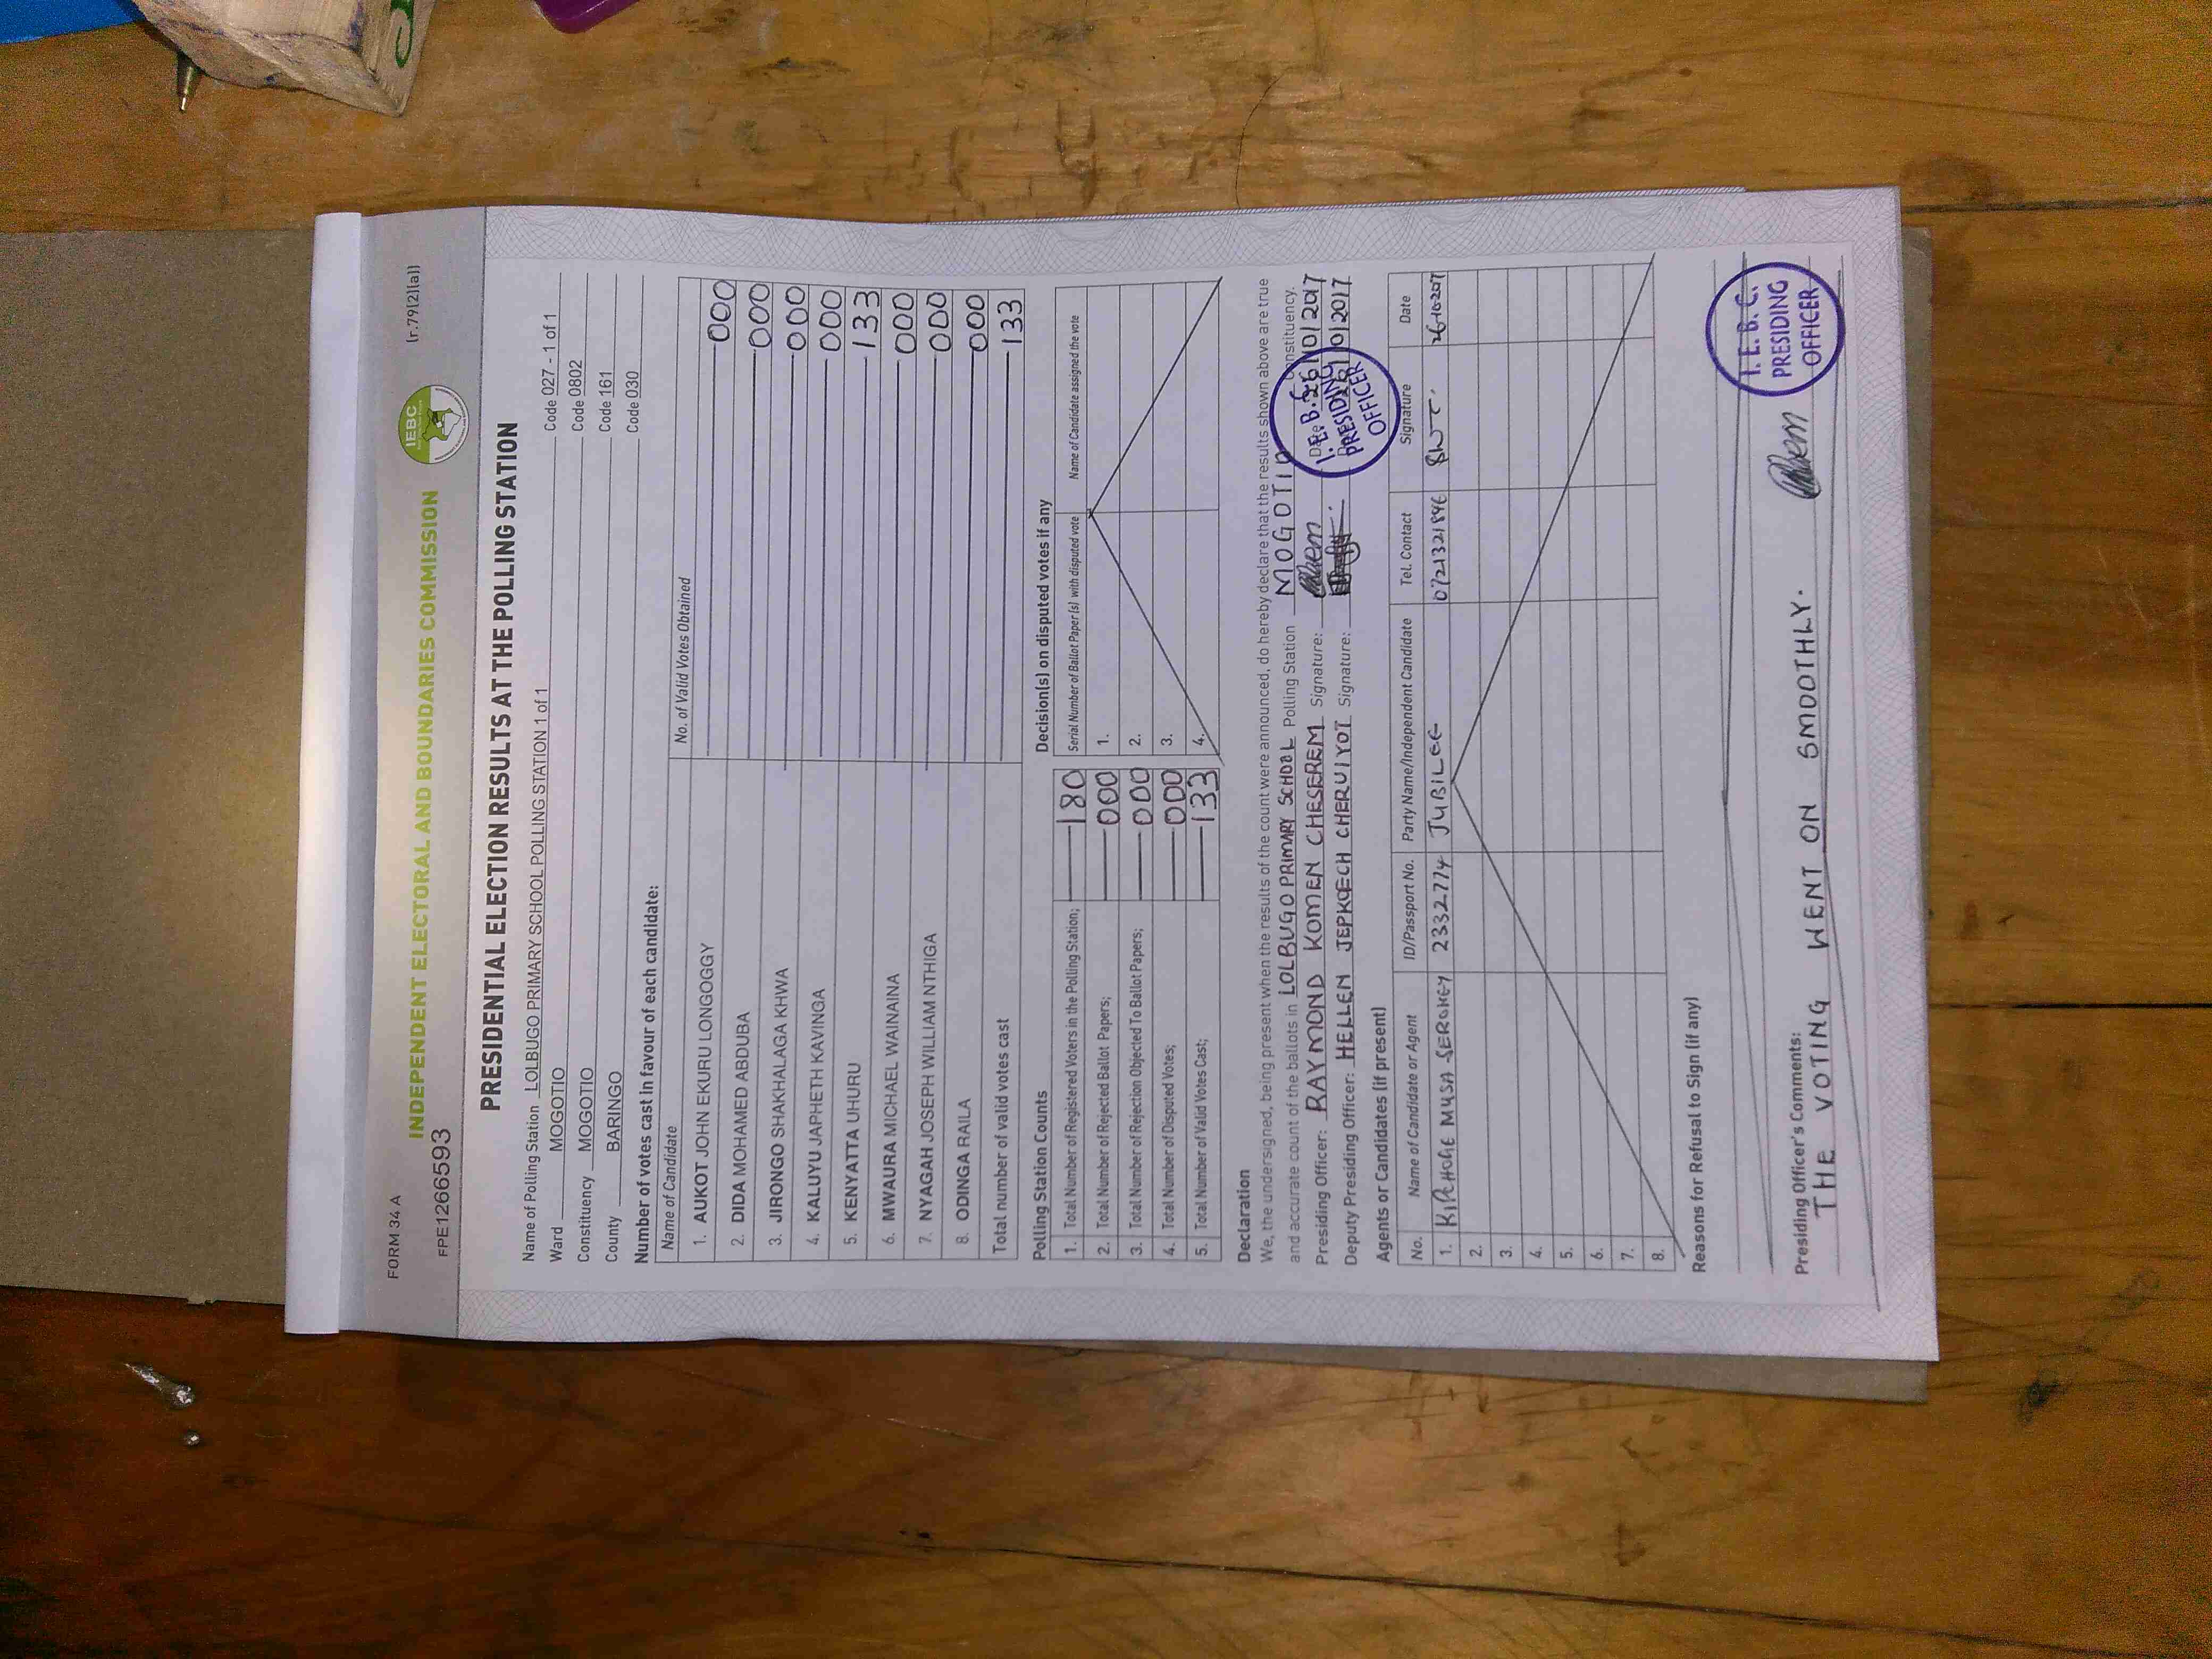 FORM 34 A
(r.79(2)(a))
IEBC
INDEPENDENT ELECTORAL AND BOUNDARIES COMMISSION
FPE1266593
PRESIDENTIAL ELECTION RESULTS AT THE POLLING STATION
Name of Polling Station LOLBUGO PRIMARY SCHOOL POLLING STATION 1 of 1 Code 027 - 1 of 1
Ward MOGOTIO Code 0802
Constituency MOGOTIO Code 161
County BARINGO Code 030
Number of votes cast in favour of each candidate:
Name of Candidate No. of Valid Votes Obtained
1. AUKOT JOHN EKURU LONGOGGY 000
2. DIDA MOHAMED ABDUBA 000
3. JIRONGO SHAKHALAGA KHWA 000
4. KALUYU JAPHETH KAVINGA 000
5. KENYATTA UHURU 133
6. MWAURA MICHAEL WAINAINA 000
7. NYAGAH JOSEPH WILLIAM NTHIGA 000
8. ODINGA RAILA 000
Total number of valid votes cast 133
Polling Station Counts
1. Total Number of Registered Voters in the Polling Station; 180
2. Total Number of Rejected Ballot Papers; 000
3. Total Number of Rejection Objected To Ballot Papers; 000
4. Total Number of Disputed Votes; 000
5. Total Number of Valid Votes Cast; 133
Decision(s) on disputed votes if any
Serial Number of Ballot Paper (s) with disputed vote Name of Candidate assigned the vote
1.
2.
3.
4.
Declaration
We, the undersigned, being present when the results of the count were announced, do hereby declare that the results shown above are true
and accurate count of the ballots in LOLBUGO PRIMARY SCHOOL Polling Station MOGOTIO Constituency.
Presiding Officer: RAYMOND KOMEN CHESEREM Signature: Date 26/10/2017
Deputy Presiding Officer: HELLEN JEPKOECH CHERUIYOT Signature: 26/10/2017
I. E. B. C.
PRESIDING
OFFICER
Agents or Candidates (if present)
No. Name of Candidate or Agent ID/Passport No. Party Name/Independent Candidate Tel. Contact Signature Date
1. KIPCHOGE MUSA SERONEY 2332774 JUBILEE 0721321846 26-10-2017
2.
3.
4.
5.
6.
7.
8.
Reasons for Refusal to Sign (if any)
Presiding Officer's Comments:
THE VOTING WENT ON SMOOTHLY.
I. E. B. C.
PRESIDING
OFFICER